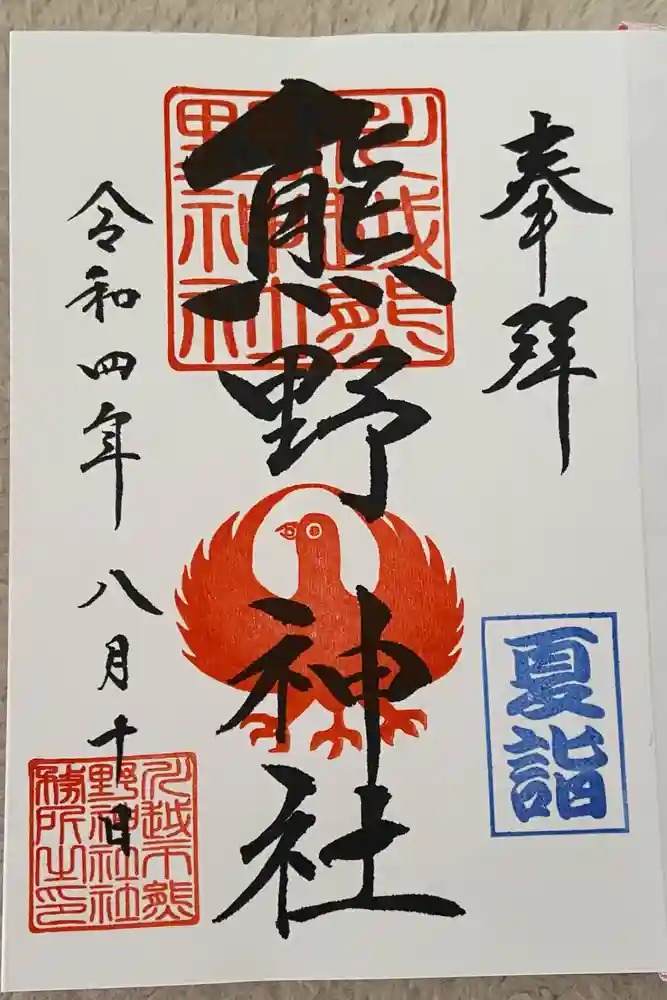 奉拝
夏詣
熊野神社
川越熊
野神社
令和四年八月十日
川越市熊
野神社社
務所之印